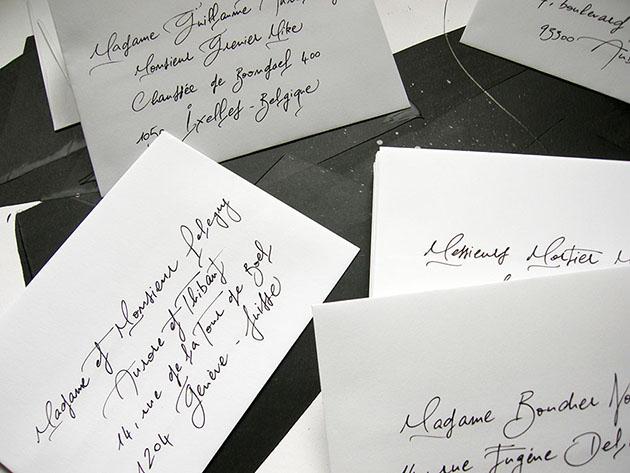 Madame Guillaume
Monsieur Grenier Mike
Chaussée de Boondael 400
1050 Ixelles - Belgique
boulevard
95300
Madame et Monsieur
Aurore et Thibaut
14, rue de la Tour de Boel
1204 Genève - Suisse
Messieurs Mortier
Madame Boucher
rue Eugène